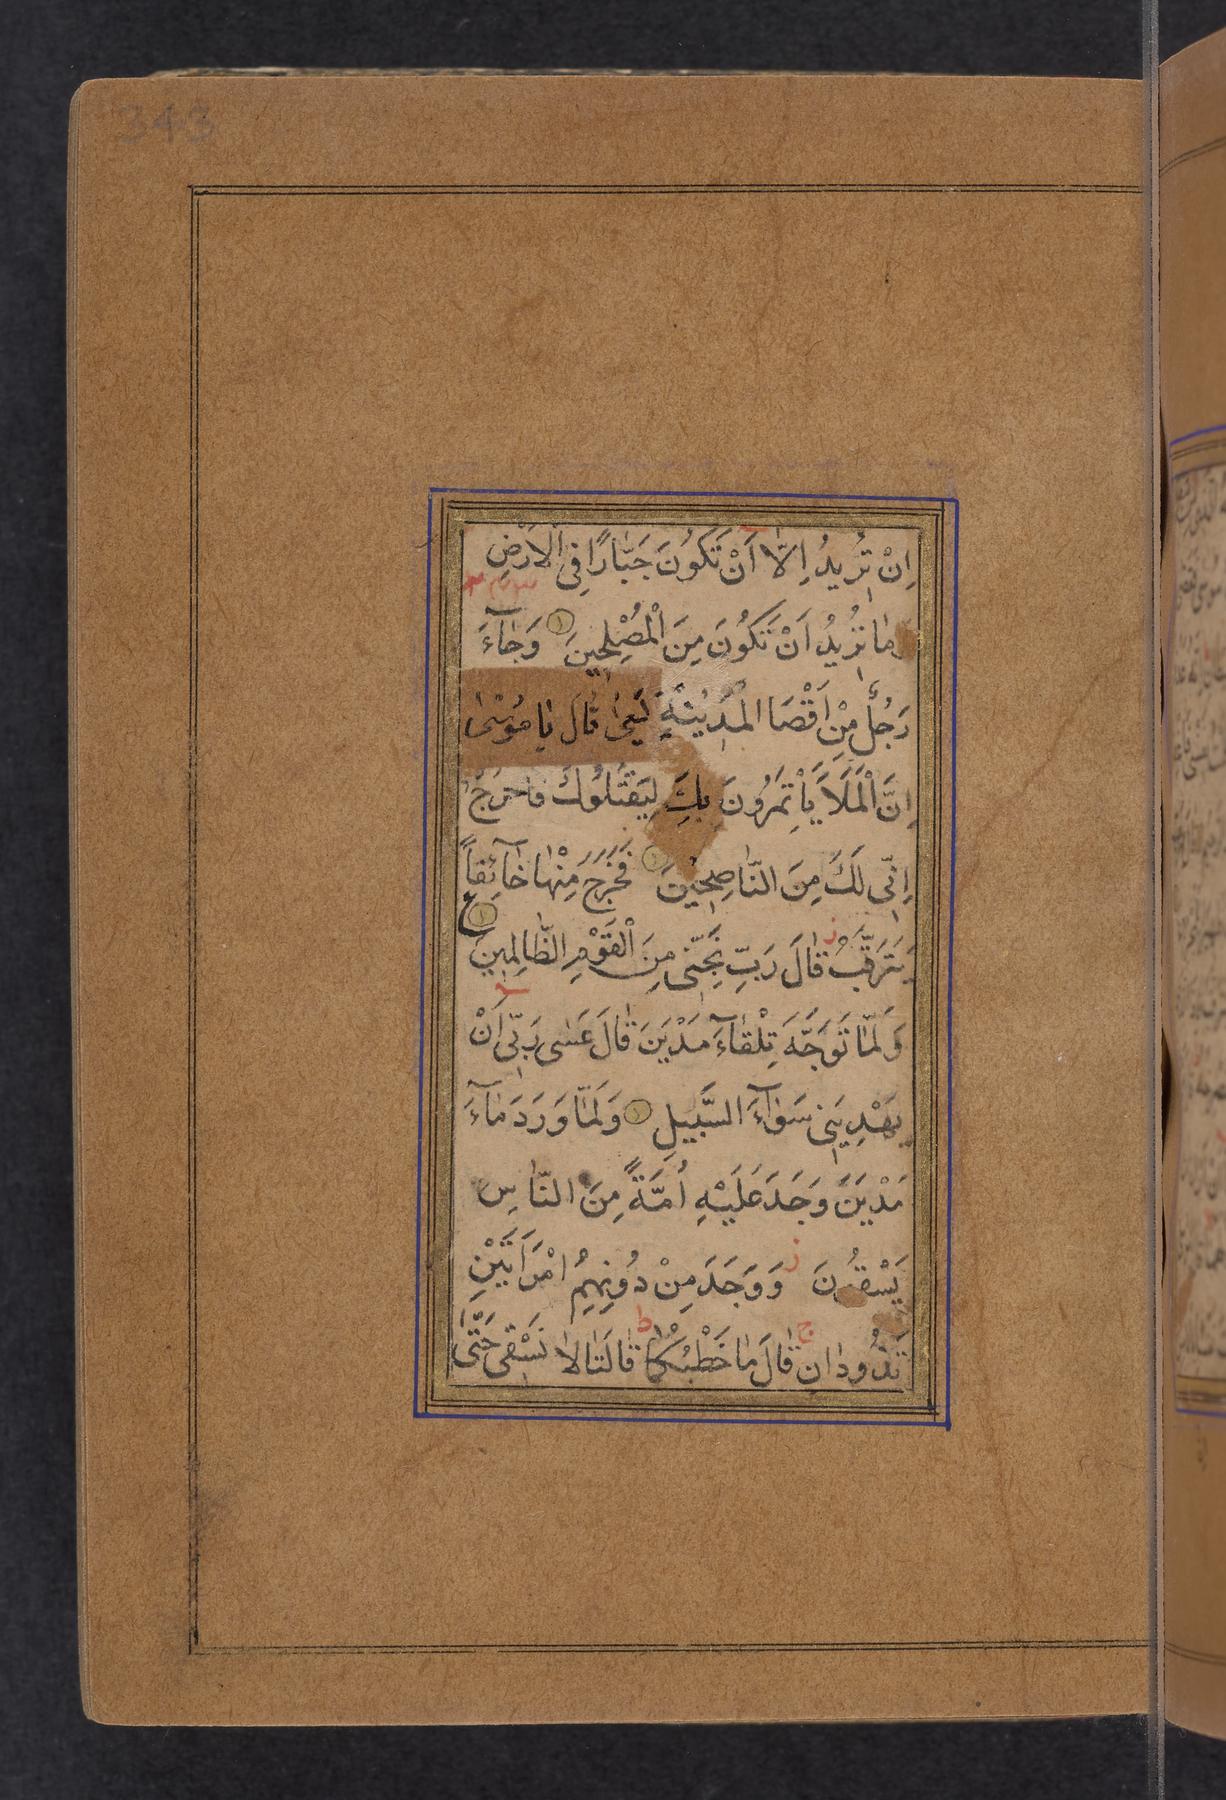 343
اِنْ تُرِيدُ اِلَّا اَنْ تَكُونَ جَبَّارًا فِى الْاَرْضِ
وَمَا تُرِيدُ اَنْ تَكُونَ مِنَ الْمُصْلِحِينَ وَجَآءَ
رَجُلٌ مِنْ اَقْصَا الْمَدِينَةِ يَسْعٰى قَالَ يَا مُوسٰى
اِنَّ الْمَلَاَ يَاْتَمِرُونَ بِكَ لِيَقْتُلُوكَ فَاخْرُجْ
اِنِّى لَكَ مِنَ النَّاصِحِينَ فَخَرَجَ مِنْهَا خَآئِفاً
يَتَرَقَّبُ قَالَ رَبِّ نَجِّنِى مِنَ الْقَوْمِ الظَّالِمِينَ
وَلَمَّا تَوَجَّهَ تِلْقَآءَ مَدْيَنَ قَالَ عَسٰى رَبِّى اَنْ
يَهْدِيَنِى سَوَآءَ السَّبِيلِ وَلَمَّا وَرَدَ مَآءَ
مَدْيَنَ وَجَدَ عَلَيْهِ اُمَّةً مِنَ النَّاسِ
يَسْقُونَ وَوَجَدَ مِنْ دُونِهِمُ امْرَاَتَيْنِ
تَذُودَانِ قَالَ مَا خَطْبُكُمَا قَالَتَا لَا نَسْقِى حَتّٰى